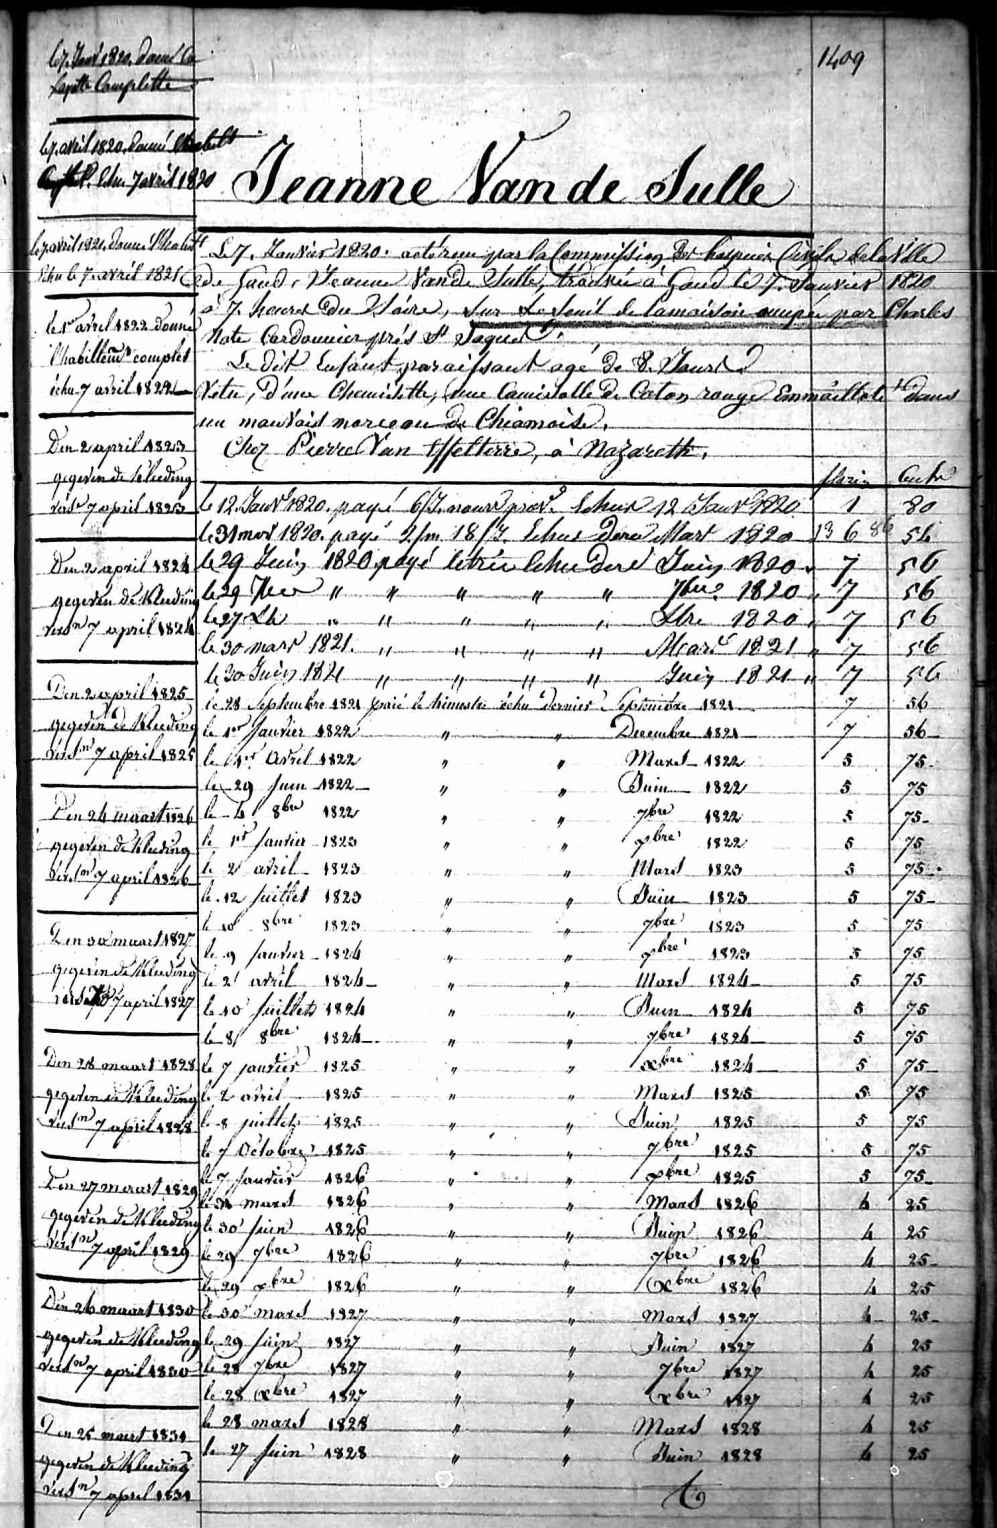 1409
le 7 Janv 1820. donné la
Layette Complette
le 7 avril 1820. donné
Echu 7 avril 1820
Jeanne Van de Sulle
le 7 avril 1821. donné l'habillt
Echu le 7 avril 1821
le 1er avril 1822 donné
l'habillemt complet
échu 7 avril 1822
Den 2 april 1823
gegeven de Kleeding
verstn 7 april 1823
Den 2 april 1824
gegeven de Kleeding
verstn 7 april 1824
Den 2 april 1825
gegeven de Kleeding
verstn 7 april 1825
Den 24 maart 1826
gegeven de Kleeding
verstn 7 april 1826
Den 30 maart 1827
gegeven de Kleeding
7 april 1827
Den 28 maart 1828
gegeven de Kleeding
verstn 7 april 1828
Den 27 maart 1829
gegeven de Kleeding
verstn 7 april 1829
Den 26 maart 1830
gegeven de Kleeding
verstn 7 april 1830
Den 25 maart 1831
gegeven de Kleeding
verstn 7 april 1831
Le 7. Janvier 1820. a été reçu par la Commission des hospices Civils de la Ville
de Gand, Jeanne Van de Sulle, trouvée à Gand le 7. Janvier 1820
à 7 heures du Soire, Sur Le Seuil de la maison occupée par Charles
Note Cordonnier près St Jaques.
Le dit Enfant paraissant agé de 8. Jours
Vetu, d'une Chemisette, une Camisolle de Coton rouge Emmaillotté dans
un mauvais morceau de Chiamoise.
Chez Pierre Van, à Nazareth.
florin Cents
le 12 Janvr 1820. payé Echus 12 Janvr 1820 1 80
le 31 mars 1820. payé Echus Mars 1820 13 6 86 54
le 29 Juin 1820 payé letrie Echu deré Juin 1820 " 7 56
le 29 7bre " " " " " 7bre 1820 " 7 56
le 27 " " " " " 1820 " 7 56
le 30 mars 1821. " " " " Mars 1821 " 7 56
le 30 Juin 1821 " " " " Juin 1821 " 7 56
le 28 Septembre 1821 paié le trimestre échu dernier Septembre 1821 7 56
le 1er Janvier 1822 " " Decembre 1821 7 56
le 1er Avril 1822 " " Mars 1822 5 75
le 29 Juin 1822 " " Juin 1822 5 75
le 4 8bre 1822 " " 7bre 1822 5 75
le 1er Janvier 1823 " " xbre 1822 5 75
le 2 avril 1823 " " Mars 1823 5 75
le 12 juillet 1823 " " Juin 1823 5 75
le 10 8bre 1823 " " 7bre 1823 5 75
le 9 Janvier 1824 " " xbre 1823 5 75
le 2 avril 1824 " " Mars 1824 5 75
le 10 Juillet 1824 " " Juin 1824 5 75
le 8 8bre 1824 " " 7bre 1824 5 75
le 7 janvier 1825 " " xbre 1824 5 75
le 2 avril 1825 " " Mars 1825 5 75
le 8 juillet 1825 " " Juin 1825 5 75
le 7 Octobre 1825 " " 7bre 1825 5 75
le 7 Janvier 1826 " " xbre 1825 5 75
le 31 mars 1826 " " Mars 1826 4 25
le 30 Juin 1826 " " Juin 1826 4 25
le 29 7bre 1826 " " 7bre 1826 4 25
le 29 xbre 1826 " " xbre 1826 4 25
le 30 mars 1827 " " Mars 1827 4 25
le 29 Juin 1827 " " Juin 1827 4 25
le 28 7bre 1827 " " 7bre 1827 4 25
le 28 xbre 1827 " " xbre 1827 4 25
le 28 mars 1828 " " Mars 1828 4 25
le 27 Juin 1828 " " Juin 1828 4 25